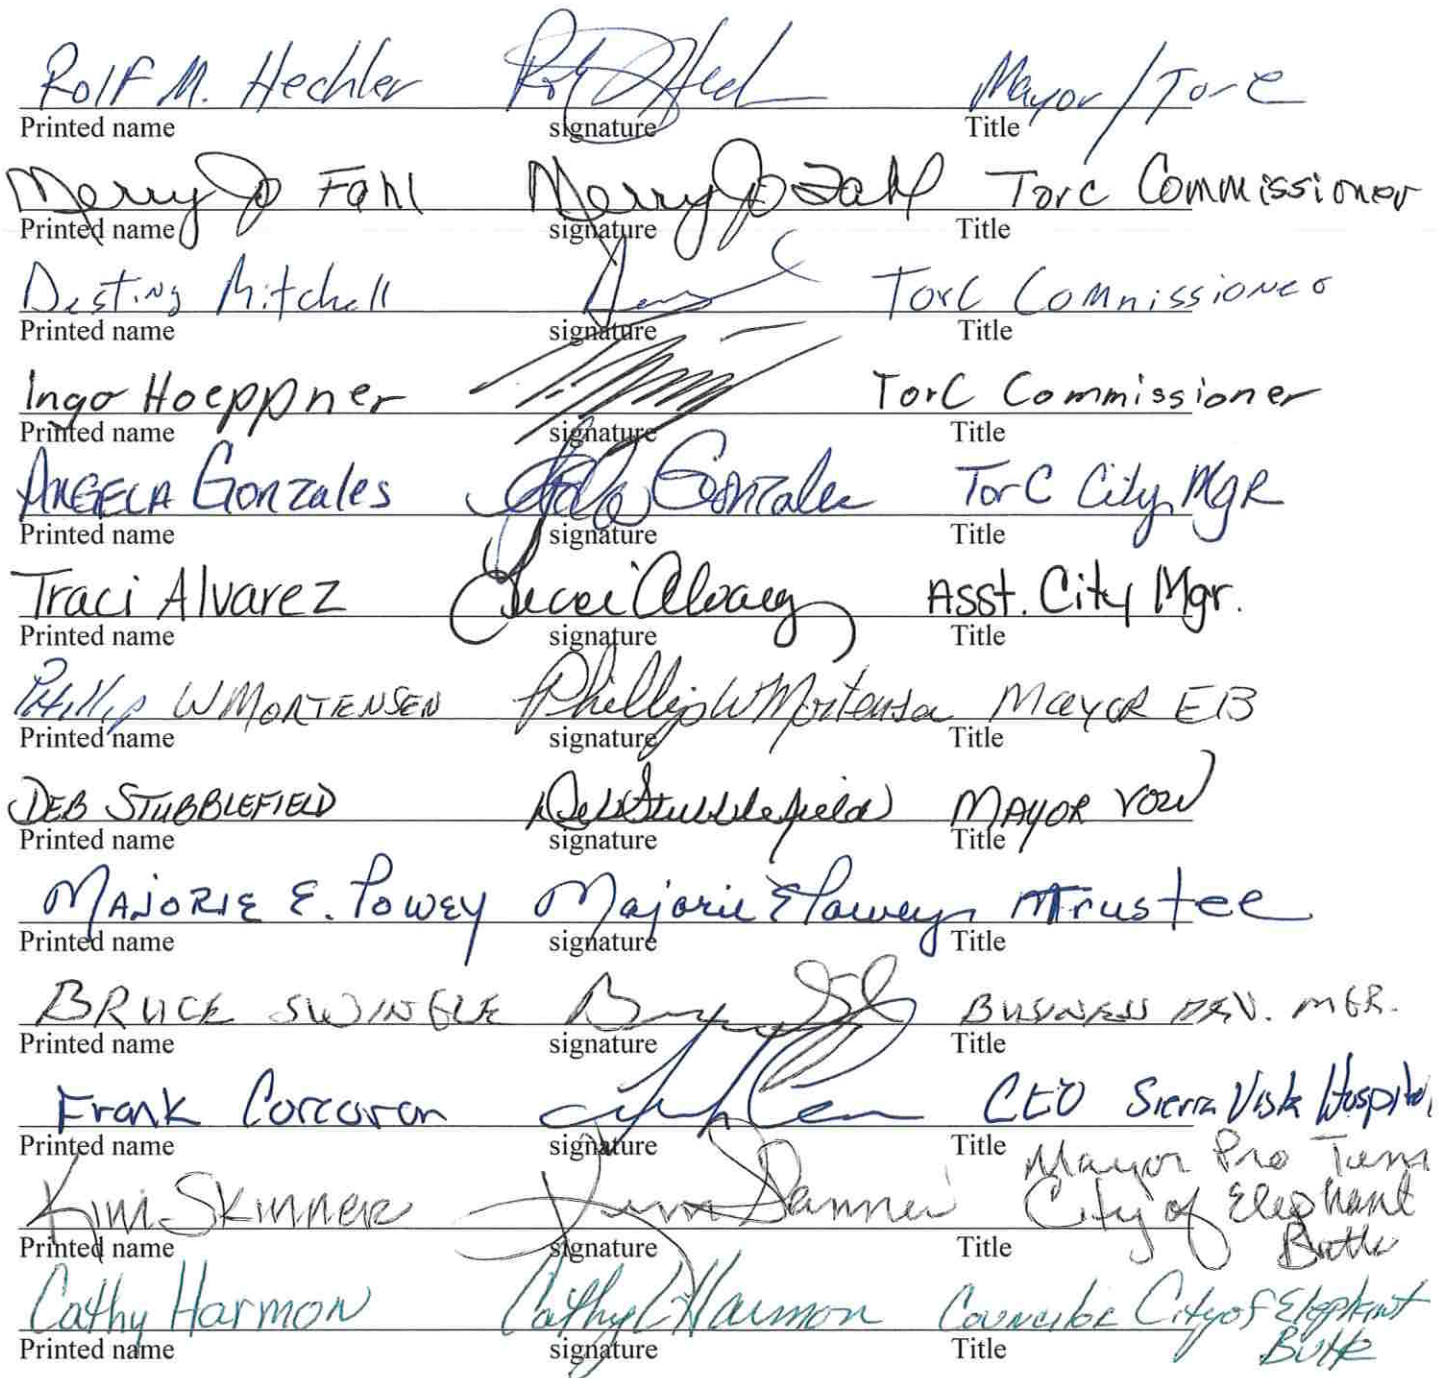 Rolf M. Hechler Mayor/TorC
Printed name signature Title
Merry Jo Fahl Merry Jo Fahl TorC Commissioner
Printed name signature Title
Destiny Mitchell TorC Commissioner
Printed name signature Title
Ingo Hoeppner TorC Commissioner
Printed name signature Title
ANGELA Gonzales Gonzales TorC City MgR
Printed name signature Title
Traci Alvarez Traci Alvarez Asst. City Mgr.
Printed name signature Title
Phillip W MORTENSEN Phillip W Mortensen Mayor EB
Printed name signature Title
DEB STUBBLEFIELD Deb Stubblefield MAYOR VOW
Printed name signature Title
MAJORIE E. POWEY Majorie E Powey Trustee
Printed name signature Title
BRUCE SWINGLE BUSINESS DEV. MGR.
Printed name signature Title
Frank Corcoran CEO Sierra Vista Hospital
Printed name signature Title Mayor Pro Tem
Kim Skinner Kim Skinner City of Elephant
Printed name signature Title Butte
Cathy Harmon Cathy Harmon Councilor City of Elephant
Printed name signature Title Butte